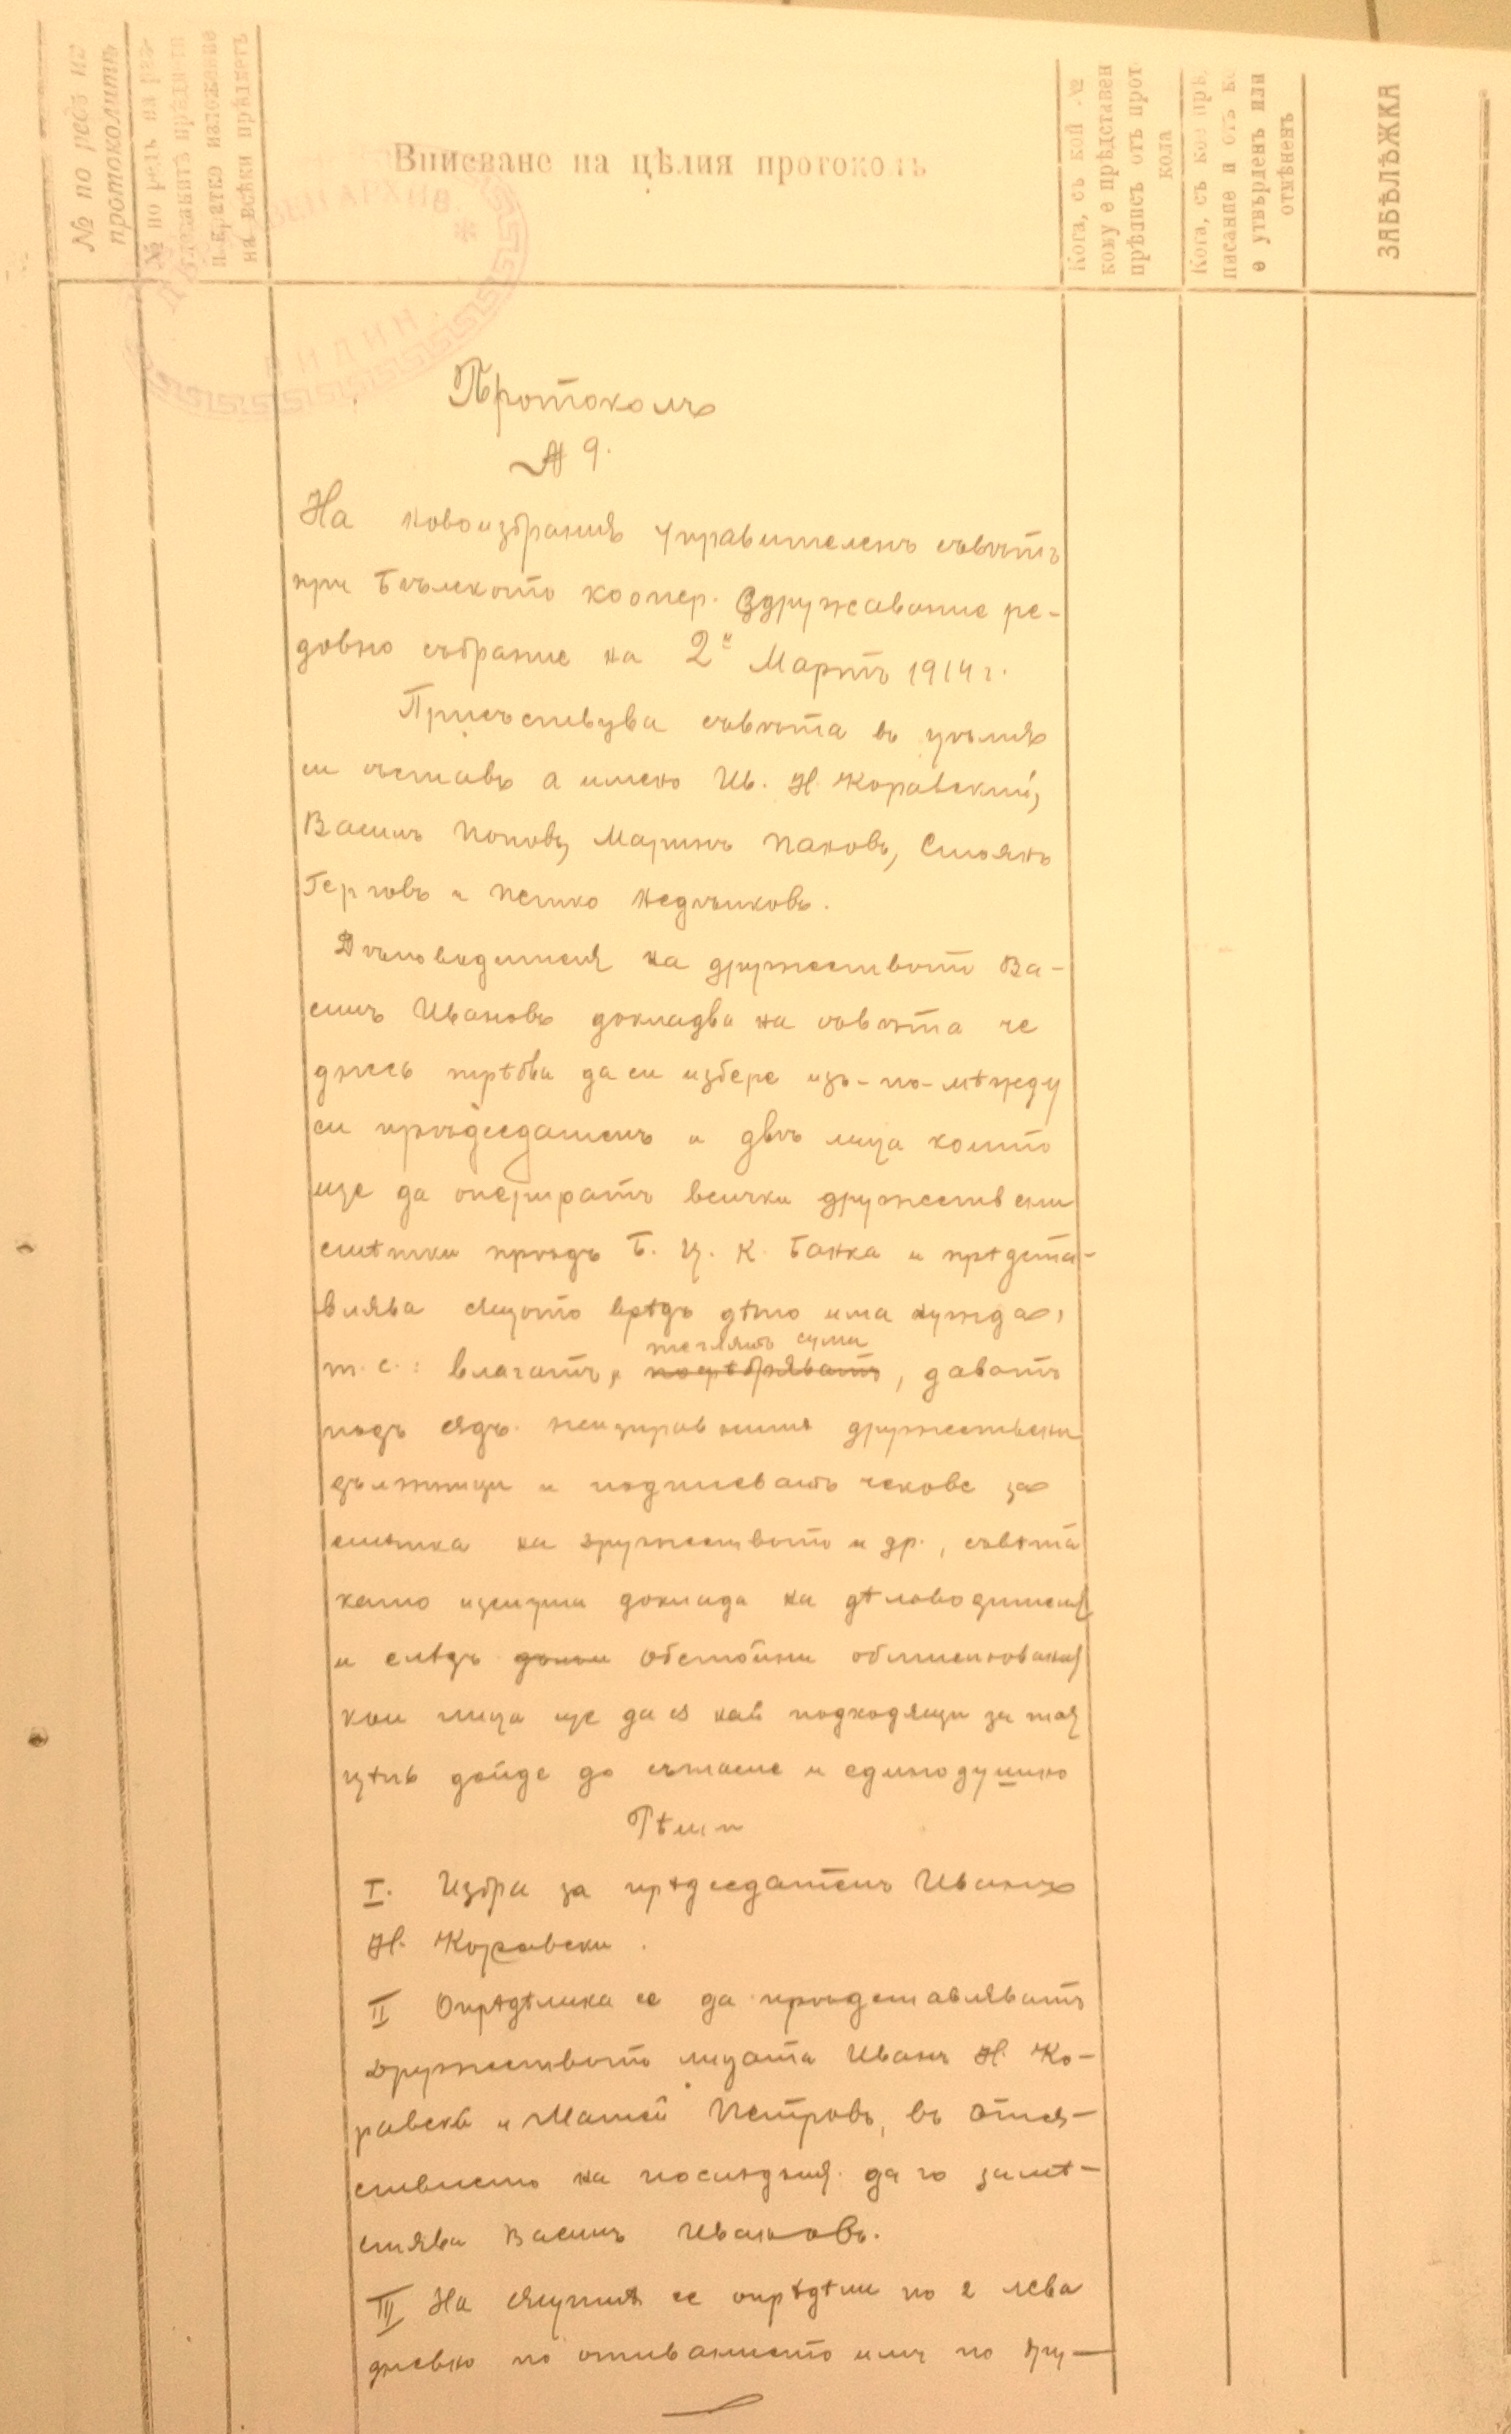 № по редъ на
протоколитѣ
№ по редъ на раз-
и кратко изложение
на всѣки прѣдметъ
Вписване на цѣлия протоколъ
Кога, съ кой №
кому е прѣдставен
прѣписъ отъ прот
кола
Кога, съ кое прѣ
писание и отъ ко
е утвърденъ или
отмѣненъ
ЗАБѢЛѢЖКА
АРХИВ
ВИДИН
Протоколъ
№ 9.
На новоизбрания управителенъ съвѣтъ
при коопер. Здружавание ре-
довно събрание на 2й Мартъ 1914 г.
Присъствува съвѣта въ цѣлия
си съставъ а имено Ив. Н. Коравский,
Василъ Поповъ, Маринъ Пановъ, Стоянъ
Герговъ и Петко Недѣлковъ.
Дѣловодителя на дружеството Ва-
силъ Ивановъ докладва на съвѣта че
днесь трѣбва да си избере изъ-по-мѣжду
си прѣдседатель и двѣ лица които
ще да оперират всички дружествени
смѣтки прѣдъ Б. Ц. К. Банка и прѣдста-
влява същото врѣдъ дѣто има нужда,
теглятъ суми
т. е.: влагатъ, , даватъ
подъ сѫдъ неизправния дружествени
длъжници и подписватъ чекове за
смѣтка на дружеството и др., съвѣта
като изслуша доклада на дѣловодителя
и слѣдъ обстойни обмисленования
кои лица ще да подходящи за тая
цѣль дойде до съгласие и единодушно
Рѣши
I. Избра за прѣдседатель Иванъ
Н. Коравски.
II Опрѣдѣлиха се да прѣдставляватъ
дружеството лицата Иванъ Н. Ко-
равски и Матей Петровъ, въ отсѫ-
ствието на послѣдния да го замѣ-
стява Василъ Ивановъ.
III На сѫщия се опрѣдѣли по 2 лева
дневно по отиванието имъ по